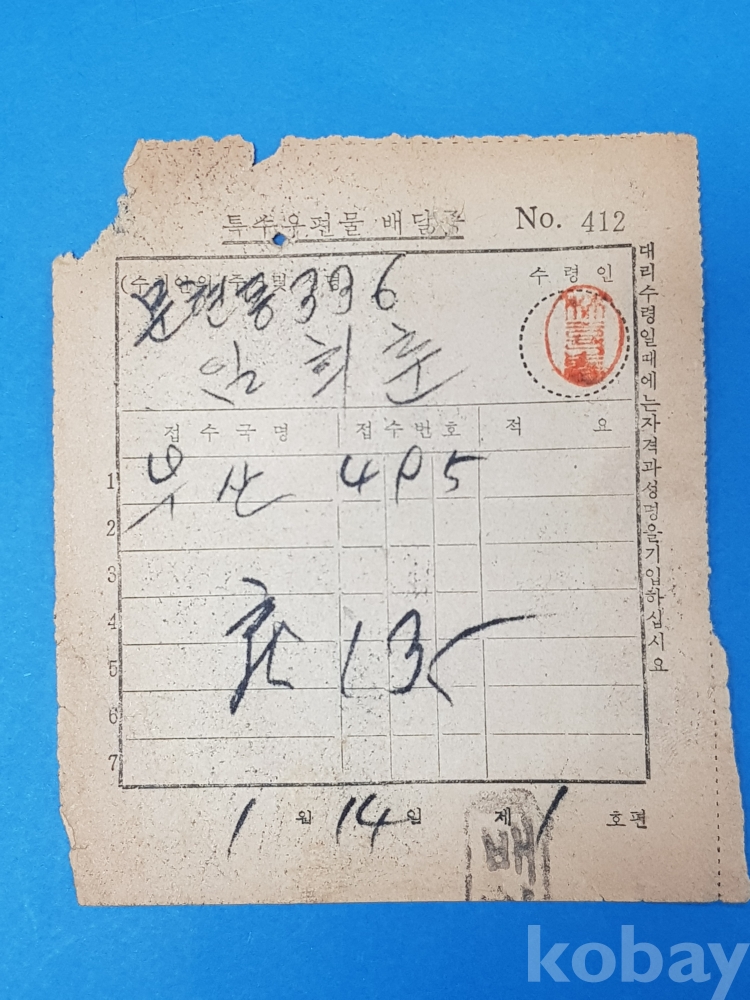 특수우편물 배달증 No. 412
(수취인의 주소 및 성명
수령인
336
임희춘
접수국명 접수번호 적요
1 부산 495
2
3
4 135
5
6
7
1월 14일 제1호편
배
대리수령일때에는자격과성명을기입하십시요
kobay